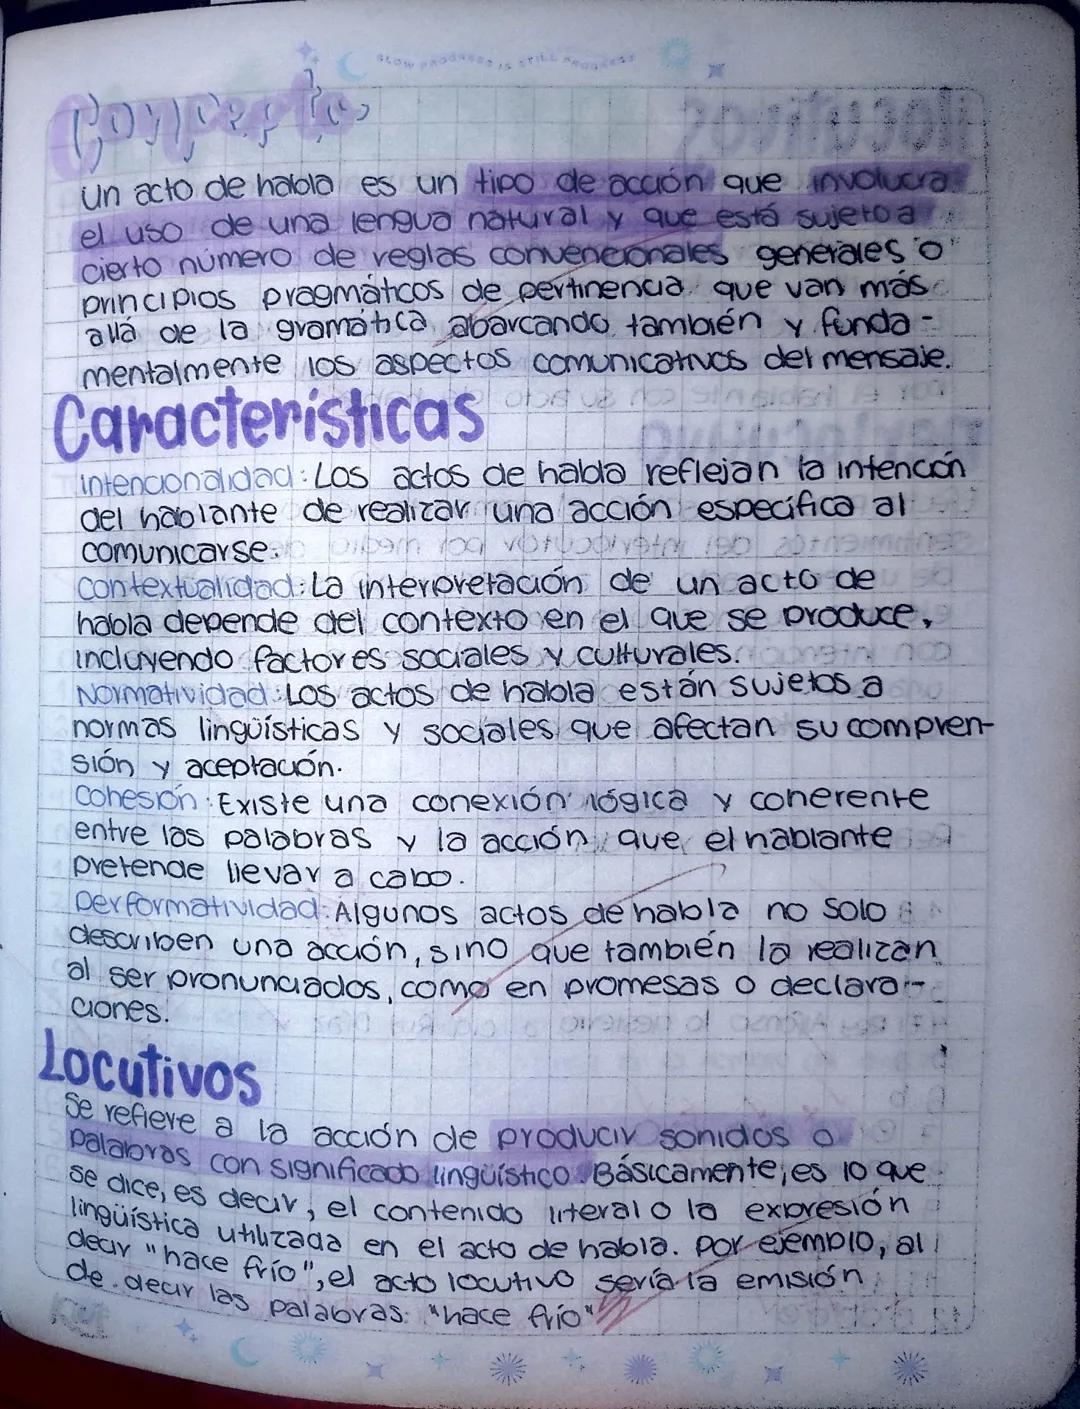 SLOW PROGRESS IS STILL PROGRESS
Concepto
un acto de habla es un tipo de acción que involucra
el uso de una lengua natural y que está sujeto a
cierto número de reglas convencionales generales o
principios pragmáticos de pertinencia que van más
allá de la gramática, abarcando también y funda-
mentalmente los aspectos comunicativos del mensaje.
Características
Intencionalidad: Los actos de habla reflejan la intención
del hablante de realizar una acción específica al
comunicarse.
Contextualidad: La interpretación de un acto de
habla depende del contexto en el que se produce,
incluyendo factores sociales y culturales.
Normatividad: Los actos de habla están sujetos a
normas lingüísticas y sociales que afectan su compren-
sión y aceptación.
Cohesión: Existe una conexión lógica y coherente
entre las palabras y la acción que el hablante
pretende llevar a cabo.
Performatividad: Algunos actos de habla no solo
describen una acción, sino que también la realizan
al ser pronunciados, como en promesas o declara-
ciones.
Locutivos
Se refiere a la acción de producir sonidos o
palabras con significado lingüístico. Básicamente, es lo que
se dice, es decir, el contenido literal o la expresión
lingüística utilizada en el acto de habla. Por ejemplo, al
decir "hace frío", el acto locutivo sería la emisión
de decir las palabras: "hace frío"